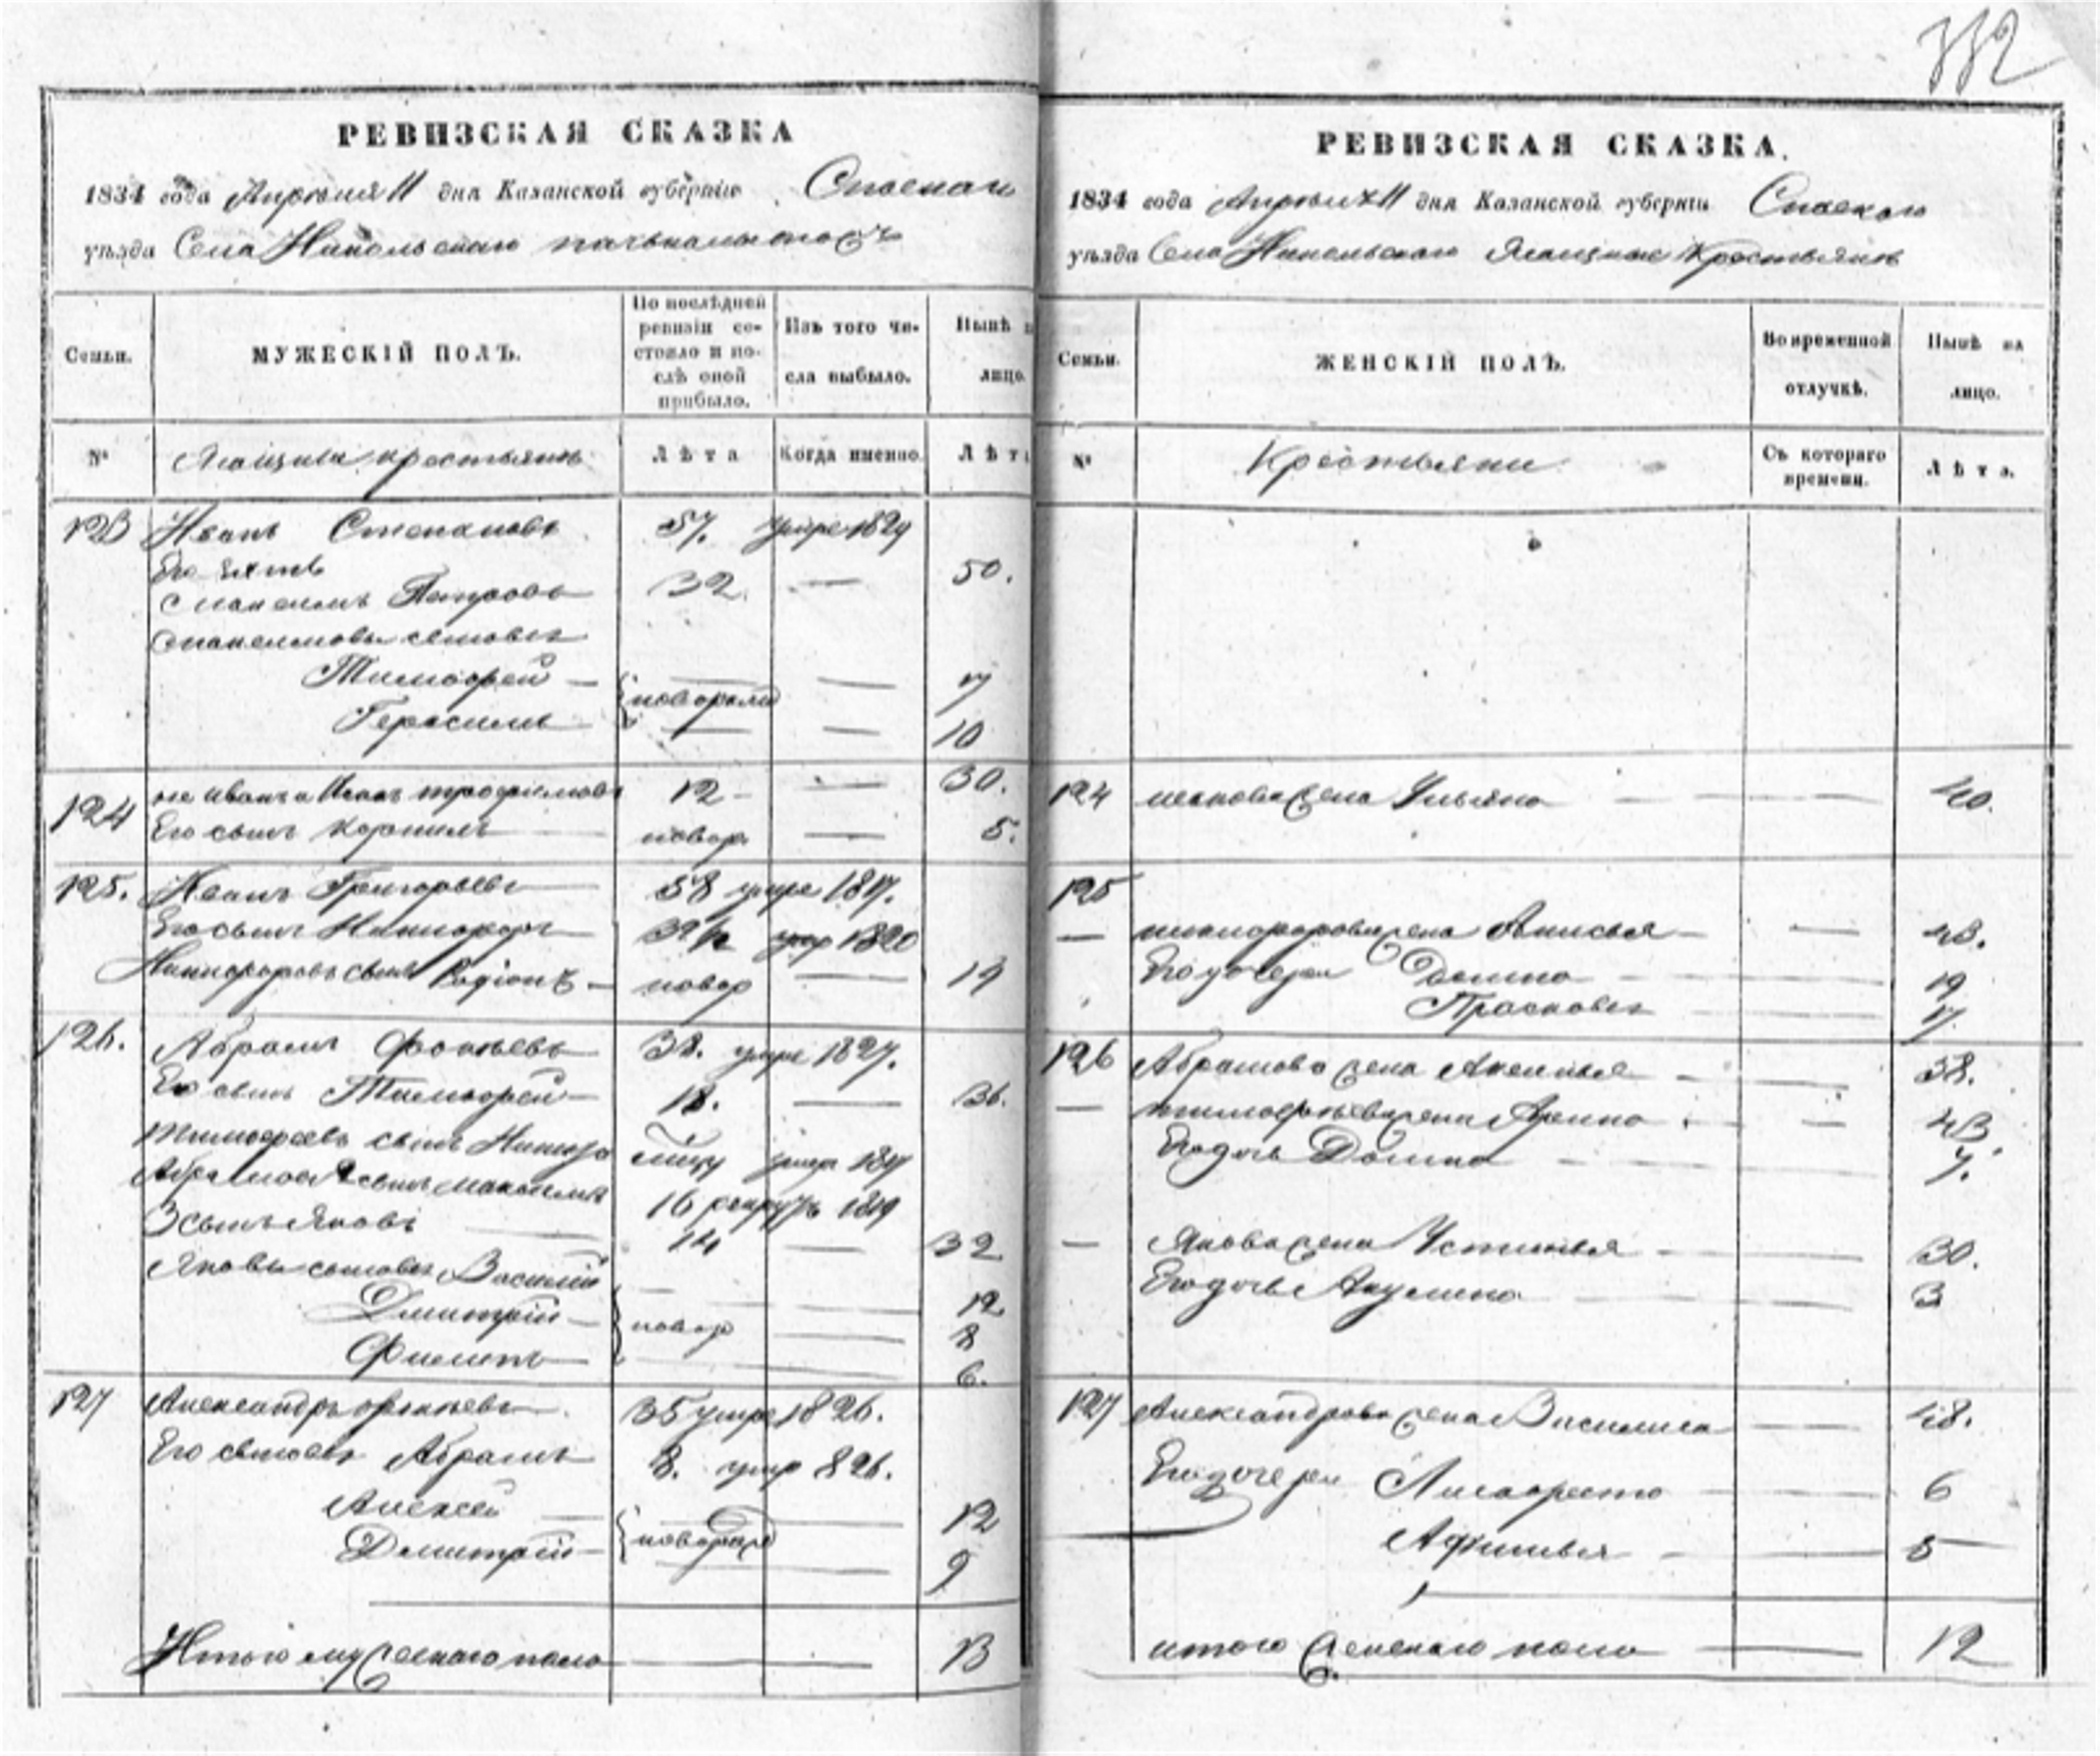 332
РЕВИЗСКАЯ СКАЗКА
1834 года Апрѣля 11 дня Казанской губерніи Спаскаго
уѣзда Села Никольскаго
Семьи.
МУЖЕСКІЙ ПОЛЪ.
По послѣдней ревизіи состояло и послѣ оной прибыло.
Изъ того числа выбыло.
Нынѣ на лицо.
№
крестьянъ
Лѣта
Когда именно.
Лѣта
123 Иванъ Степановъ 57. умре 1829
Его зять
Максимъ Петровъ 32 — 50.
Максимовы сыновья
Тимофей — — 17
новорож
Герасимъ — — 10
124 Исакъ трофимовъ 12 — 30.
Его сынъ Корнилъ новор — 5.
125. Иванъ Григорьевъ 58 умре 1817.
Его сынъ Никифоръ умр 1820
Никифоровъ сынъ Родіонъ — новор — 14
126. Абрамъ Фокѣевъ 38. умре 1827.
Его сынъ Тимофей — 18. — 36.
Тимофеевъ сынъ
Абрамовъ сынъ Максимъ 16 рекрутъ 1819
3 сынъ Яковъ 14 — 32
Яковы сыновья Василій — 12
Дмитрій — новор — 8
Филипъ — — 6.
127 Александръ фокѣевъ 35 умре 1826.
Его сыновья Абрамъ 8. умр 826.
Алексей — — 12
новорож
Дмитрій — — 9
Итого мужескаго пола — 13
РЕВИЗСКАЯ СКАЗКА.
1834 года Апрѣля 11 дня Казанской губерніи Спаскаго
уѣзда Села Никольскаго Крестьянъ
Семьи.
ЖЕНСКІЙ ПОЛЪ.
Во временной отлучкѣ.
Нынѣ на лицо.
№
Съ котораго времени.
Лѣта.
124 исакова жена Ульяна — 40.
125
— никифорова жена Анисья — 43.
Его дочери Домна — 19
Прасковья — 17.
126 Абрамова жена Аксинья — 58.
— тимофѣева жена Арина — 43
Его дочь Домна — 7.
— Якова жена Устинья — 30.
Его дочь Акулина — 3
127 Александрова жена Василиса — 48.
Его дочери — 6
Афимья — 5
итого женскаго пола — 12